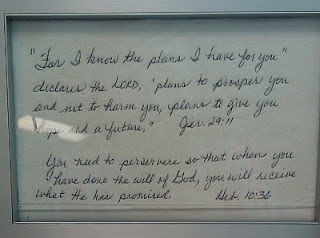 "For I know the plans I have for you"
declares the LORD, "plans to prosper you
and not to harm you, plans to give you
hope and a future." Jer. 29:11
You need to persevere so that when you
have done the will of God, you will receive
what He has promised. Heb. 10:36